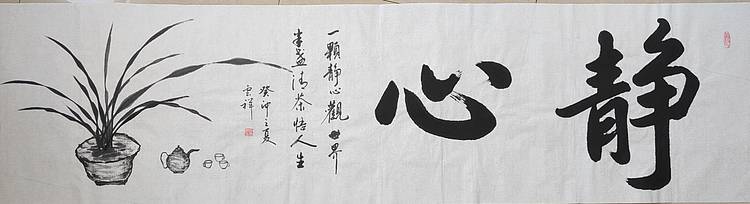 静心
一顆静心觀世界
半盏清茶悟人生
癸卯之夏
云祥